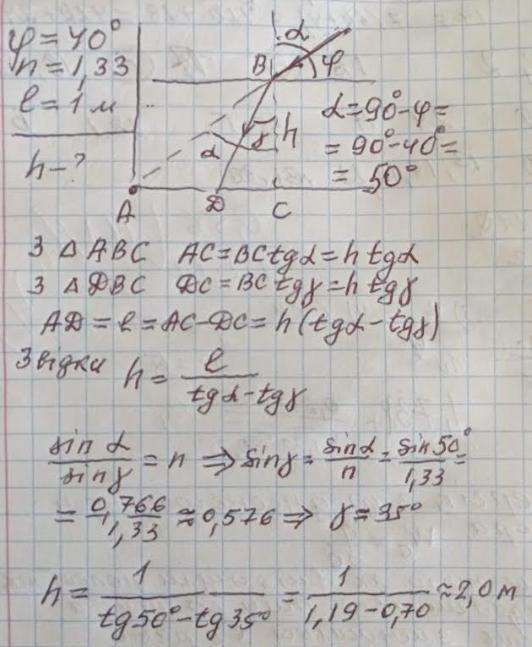 φ = 40°
n = 1,33
l = 1 м
h - ?
α
B
φ
γ
h
α
A
D
C
α = 90° - φ =
= 90° - 40° =
= 50°
З △ ABC AC = BC tgα = h tgα
З △ DBC DC = BC tgγ = h tgγ
AD = l = AC - DC = h (tgα - tgγ)
Звідки h = l / (tgα - tgγ)
sin α / sin γ = n ⇒ sin γ = sin α / n = sin 50° / 1,33 =
= 0,766 / 1,33 ≈ 0,576 ⇒ γ = 35°
h = 1 / (tg 50° - tg 35°) = 1 / (1,19 - 0,70) ≈ 2,0 м